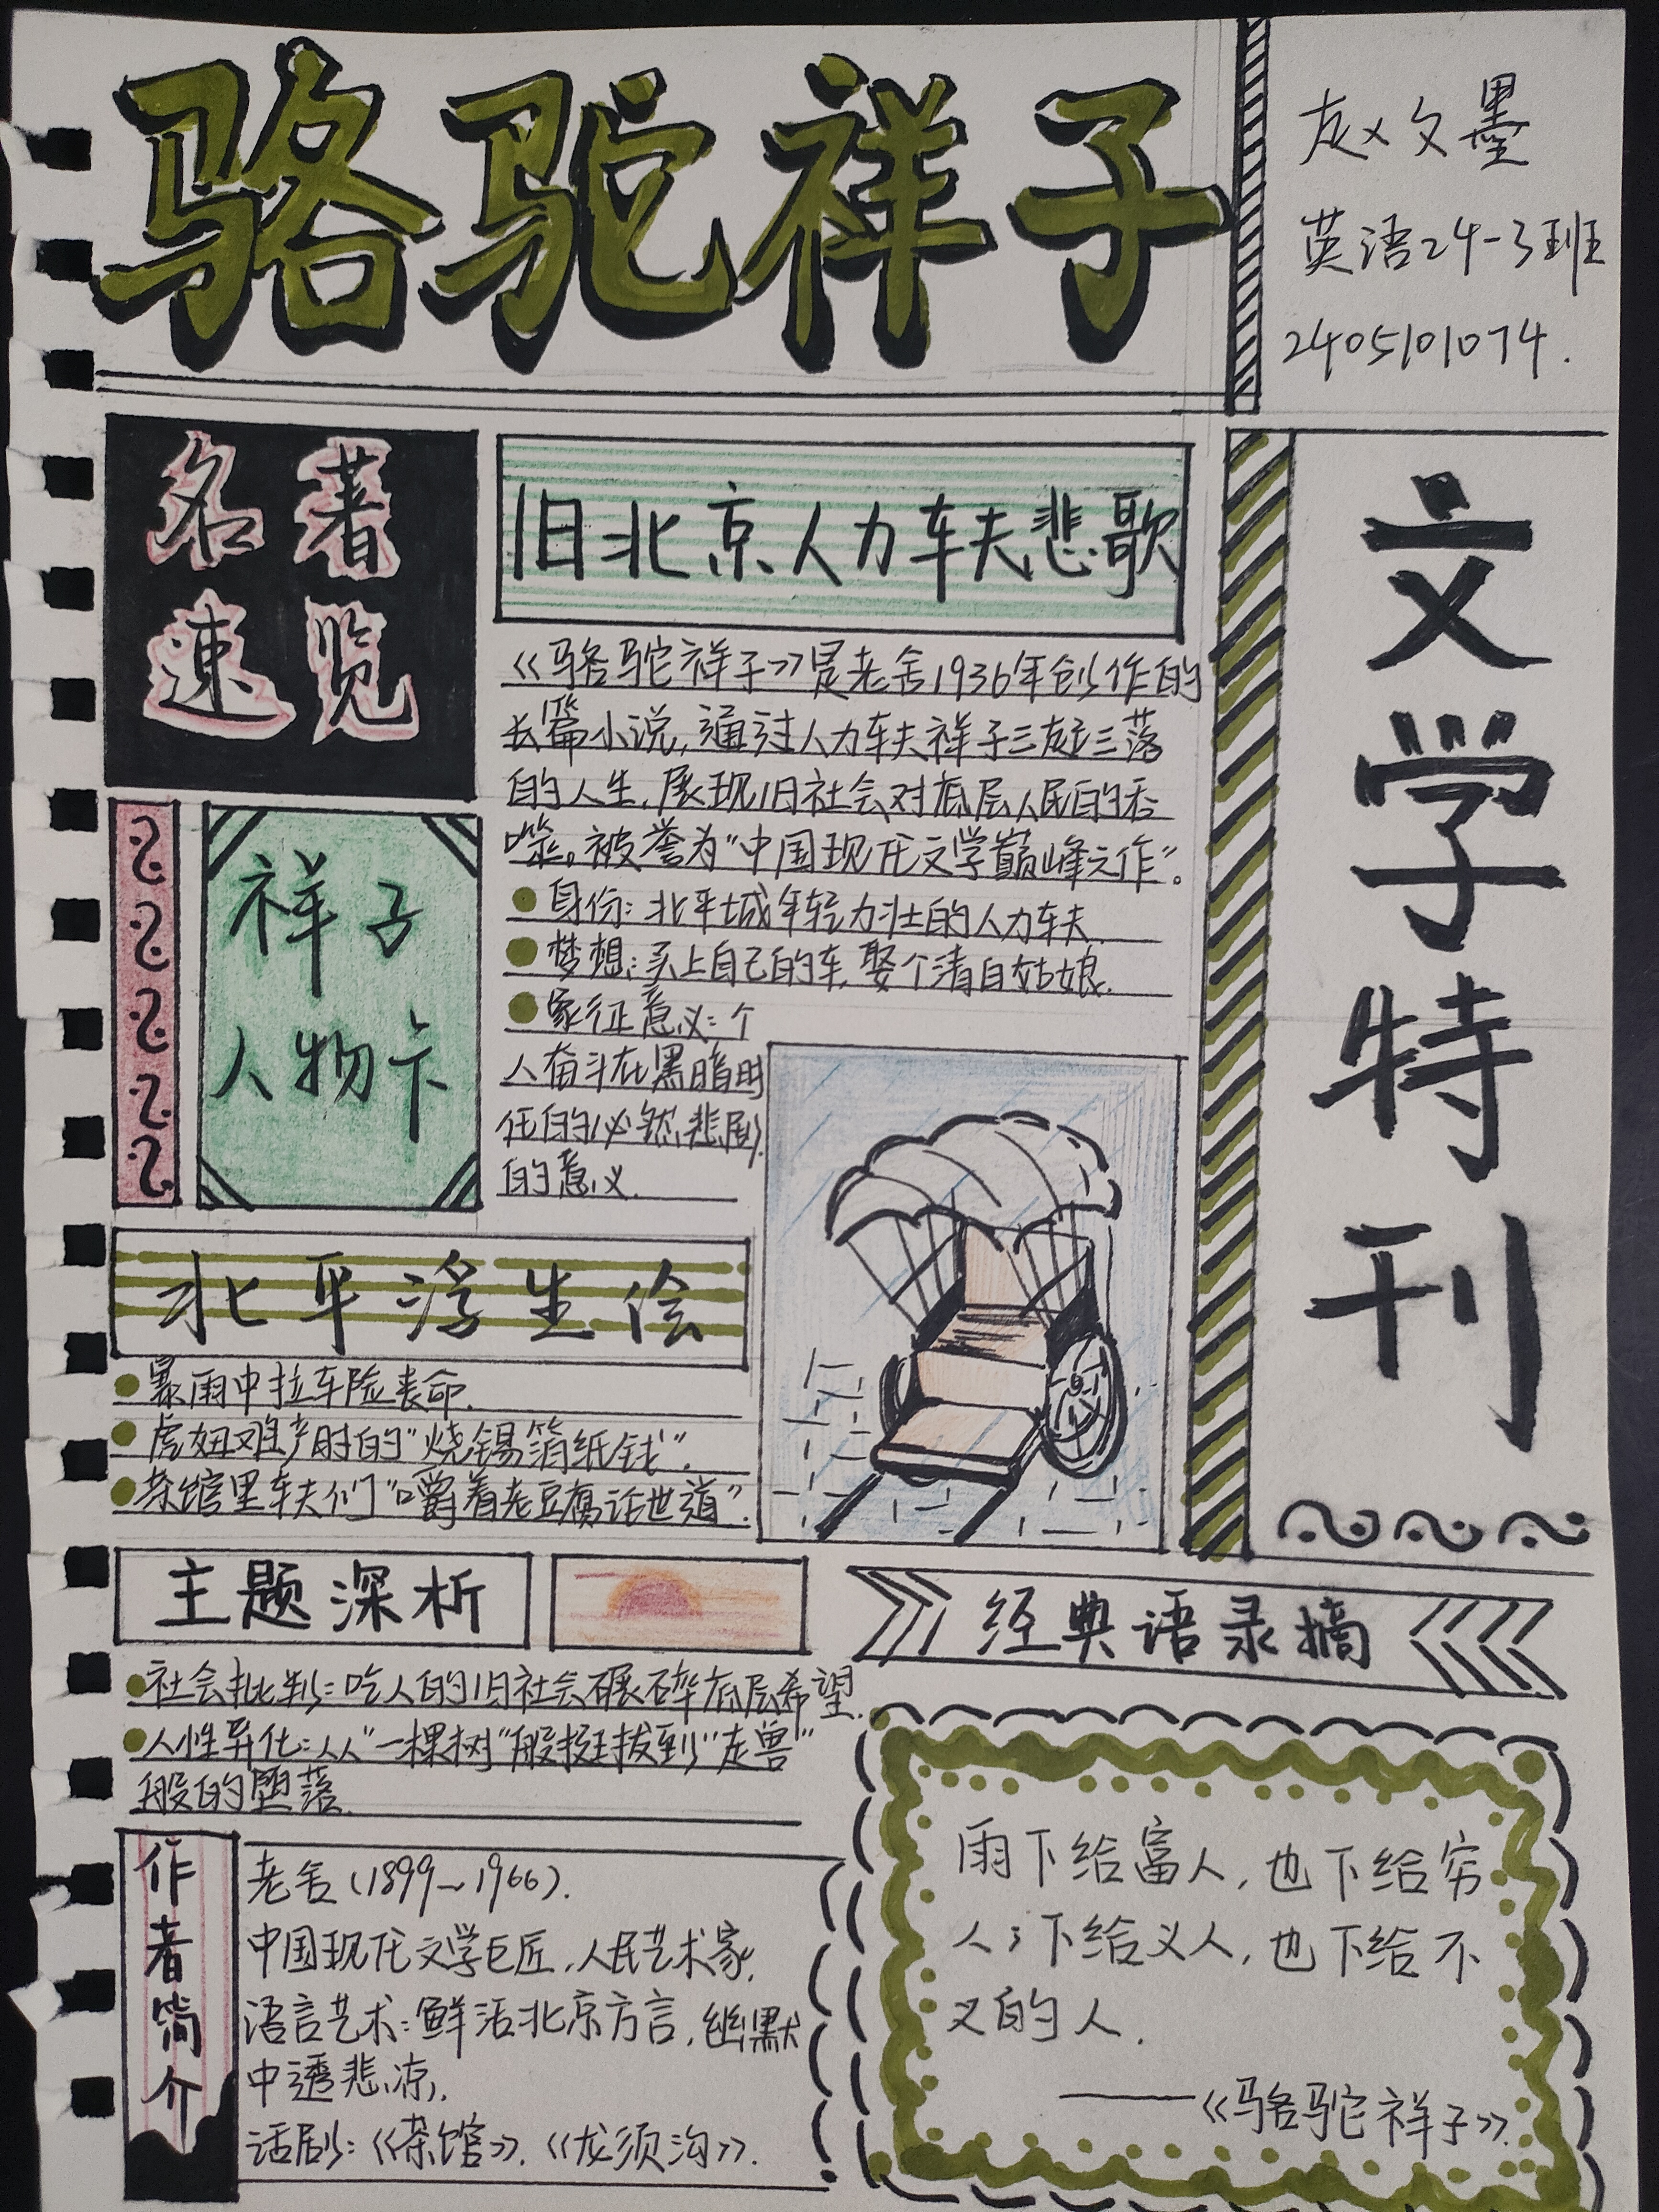 骆驼祥子
赵文墨
英语24-3班
2405101074.
文学特刊
名著
速览
旧北京人力车夫悲歌
《骆驼祥子》是老舍1936年创作的
长篇小说,通过人力车夫祥子三起三落
的人生,展现旧社会对底层人民的吞
噬。被誉为"中国现代文学巅峰之作"。
祥子
人物卡
身份:北平城年轻力壮的人力车夫.
梦想:买上自己的车,娶个清白姑娘.
象征意义:个
人奋斗在黑暗时
代的必然悲剧
的意义.
北平浮生绘
暴雨中拉车险丧命.
虎妞难产时的"烧锡箔纸钱".
茶馆里车夫们"嚼着老豆腐话世道".
主题深析
社会批判:吃人的旧社会碾碎底层希望.
人性异化:从"一棵树"般挺拔到"走兽"
般的堕落.
作者简介
老舍(1899~1966).
中国现代文学巨匠,人民艺术家.
语言艺术:鲜活北京方言,幽默
中透悲凉.
话剧:《茶馆》.《龙须沟》.
经典语录摘
雨下给富人,也下给穷
人;下给义人,也下给不
义的人.
——《骆驼祥子》.